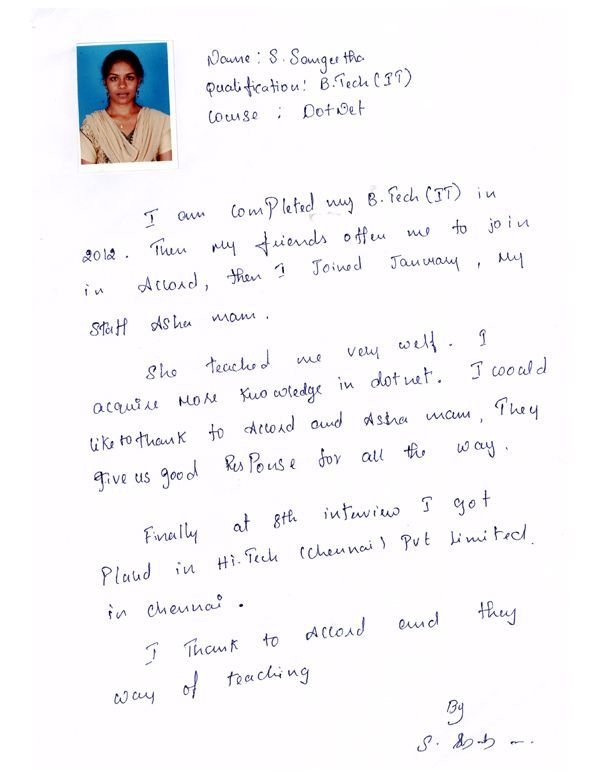 Name : S. Sangeetha
Qualification : B.Tech (IT)
Course : DotNet
I am completed my B.Tech (IT) in
2012. Then my friends offen me to join
in Accord, then I Joined January, My
Staff Asha mam.
She teached me very well. I
acquire More Knowledge in dotnet. I woould
like to thank to Accord and Asha mam, They
give us good ResPonse for all the way.
Finally at 8th interview I got
Placed in Hi-Tech (Chennai) Pvt Limited.
in chennai.
I Thank to Accord and they
way of teaching
By
S.